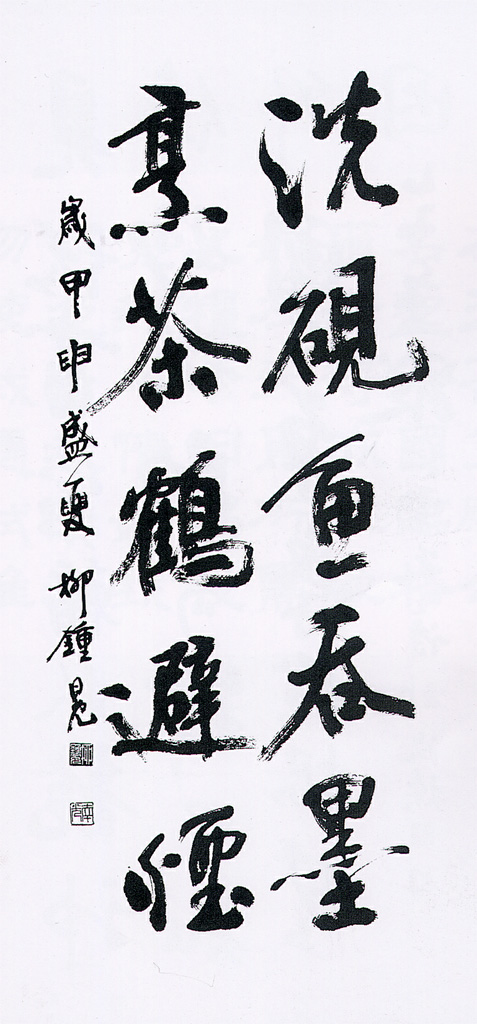 洗硯魚吞墨
烹茶鶴避煙
歲甲申盛夏 柳鍾晃